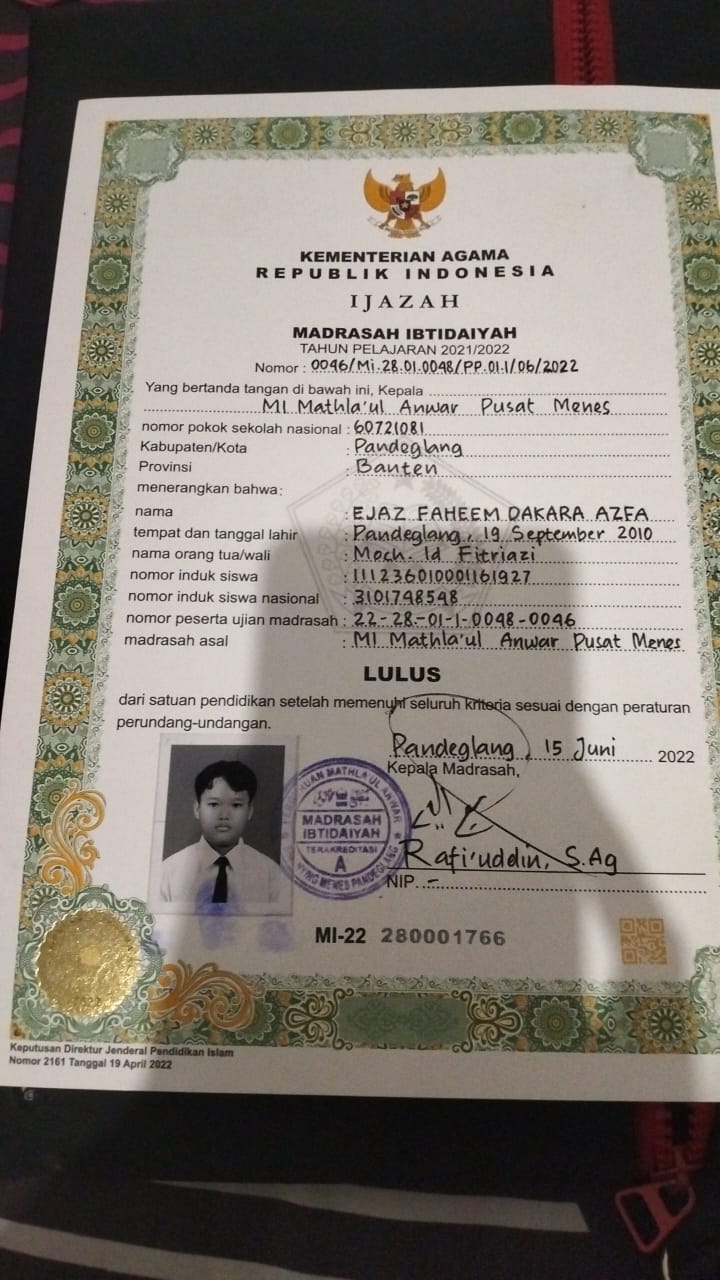 KEMENTERIAN AGAMA
REPUBLIK INDONESIA
IJAZAH
MADRASAH IBTIDAIYAH
TAHUN PELAJARAN 2021/2022
Nomor : 0046/Mi.28.01.0048/PP.01.1/06/2022
Yang bertanda tangan di bawah ini, Kepala
MI Mathla'ul Anwar Pusat Menes
nomor pokok sekolah nasional : 60721081
Kabupaten/Kota : Pandeglang
Provinsi : Banten
menerangkan bahwa:
nama : EJAZ FAHEEM DAKARA AZFA
tempat dan tanggal lahir : Pandeglang, 19 September 2010
nama orang tua/wali : Moch. Id Fitriazi
nomor induk siswa : 111236010001161927
nomor induk siswa nasional : 3101798548
nomor peserta ujian madrasah : 22-28-01-1-0048-0046
madrasah asal : MI Mathla'ul Anwar Pusat Menes
LULUS
dari satuan pendidikan setelah memenuhi seluruh kriteria sesuai dengan peraturan
perundang-undangan.
Pandeglang, 15 Juni 2022
Kepala Madrasah,
Rafi'uddin, S.Ag
NIP. -
MATHLA'UL ANWAR
MADRASAH
IBTIDAIYAH
TERAKREDITASI
A
MENES PANDEGLANG
MI-22 280001766
2022
Keputusan Direktur Jenderal Pendidikan Islam
Nomor 2161 Tanggal 19 April 2022